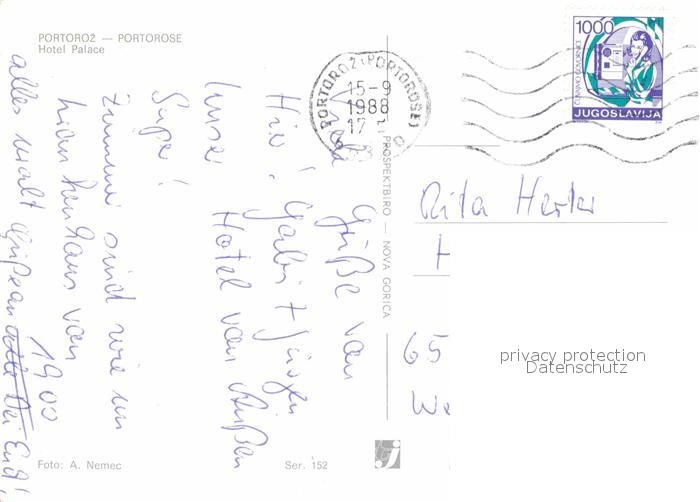 PORTOROŽ — PORTOROSE
Hotel Palace
Liebe Grüße von
Hier! Gabi + Jürgen
Unser Hotel von Außen
Super!
Zimmer sind wie im
Krankenhaus von
1900
alles uralt
Foto: A. Nemec
Ser. 152
PROSPEKTBIRO — NOVA GORICA
PORTOROŽ-PORTOROSE
15-9
1988
17
1000
JUGOSLAVIJA
Rita
H
65
privacy protection
Datenschutz